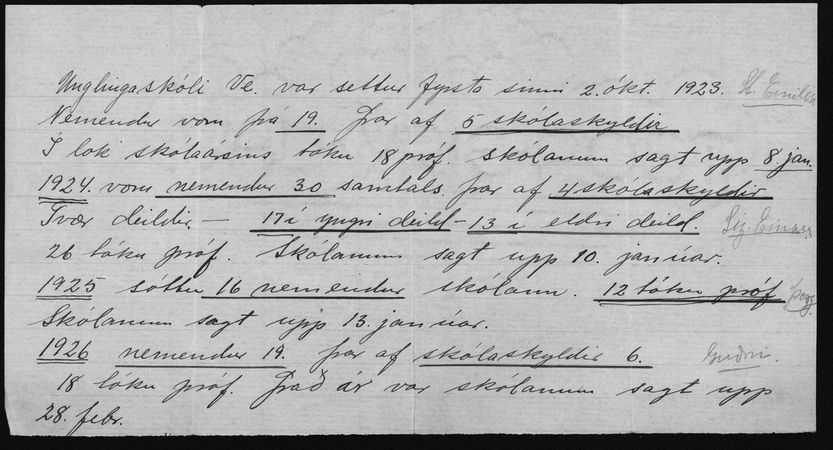 Unglingaskóli Ve. var settur fyrsta sinni 2. ókt. 1923.
Nemendur voru þá 19. Þar af 5 skólaskyldir
Í lok skólaársins tóku 18 próf. skólanum sagt upp 8. jan.
1924. voru nemendur 30 samtals. þar af 4 skólaskyldir
Tvær deildir — 17 í yngri deild – 13 í eldri deild. Sig. Einars
26 tóku próf. Skólanum sagt upp 10. janúar.
1925 sóttu 16 nemendur skólann. 12 tóku próf
Skólanum sagt upp 13. janúar.
1926 nemendur 19. þar af skólaskyldir 6.
18 tóku próf. Það ár var skólanum sagt upp
28. febr.